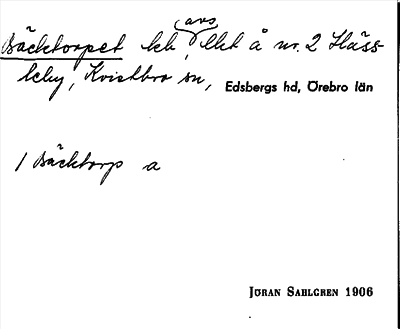 avs
Bäcktorpet lch, lht å nr. 2 Häss-
leby, Kvistbro sn, Edsbergs hd, Örebro län
1 Bäcktorp a
JÖRAN SAHLGREN 1906